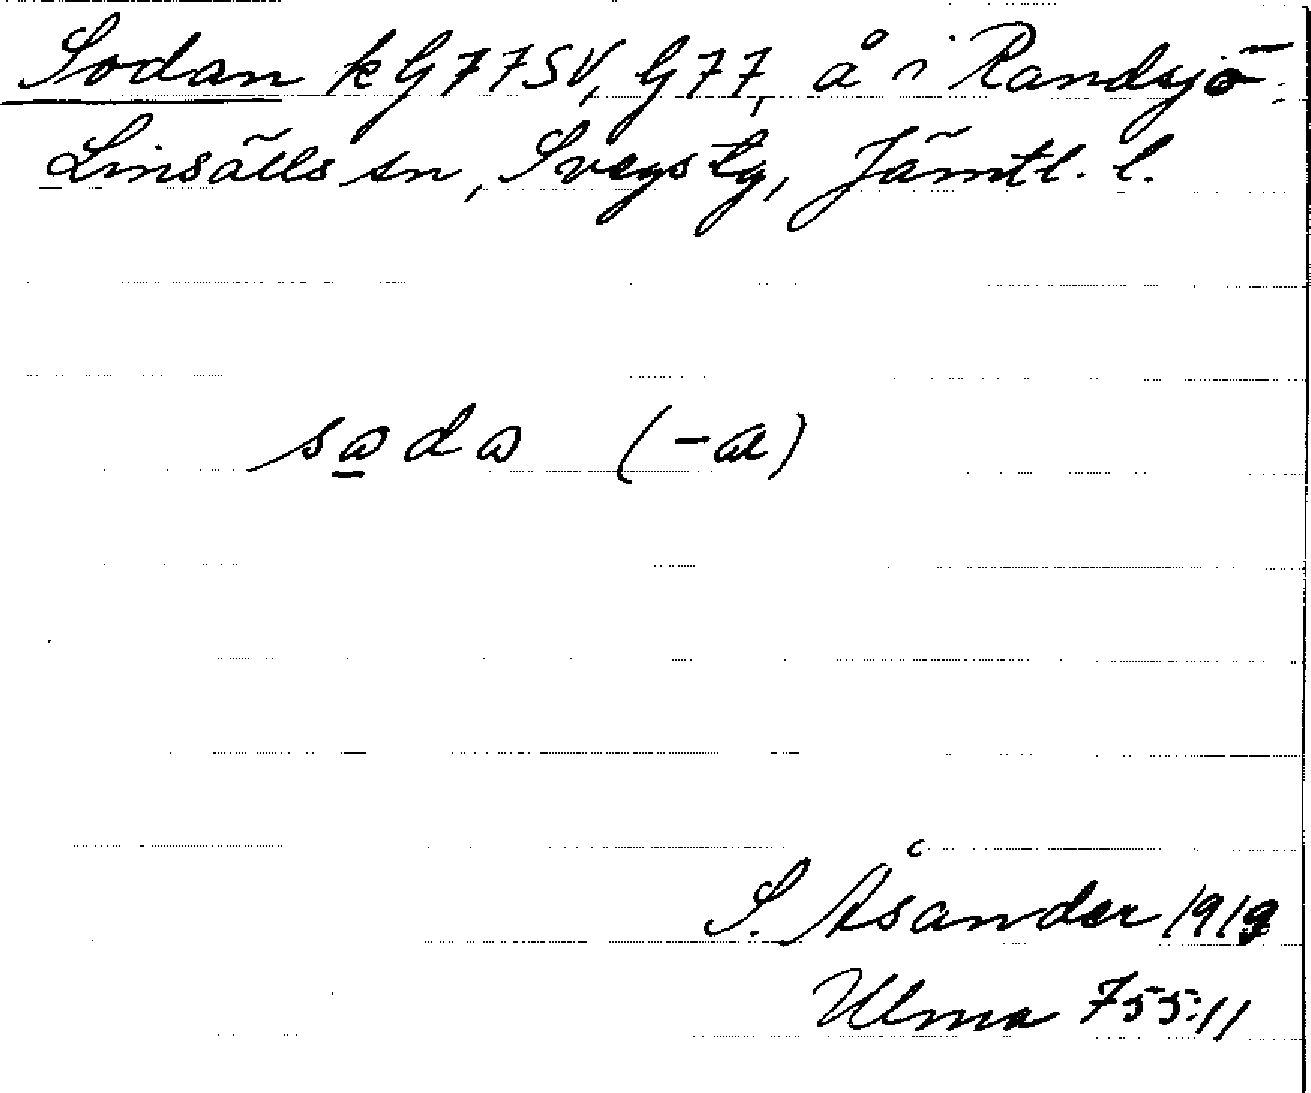 Sodan kG77SV, G77, å i Randsjö
Linsälls sn, Svegs tg, Jämtl. l.
sada (-a)
S. Åsander 1919
Ulma 755:11